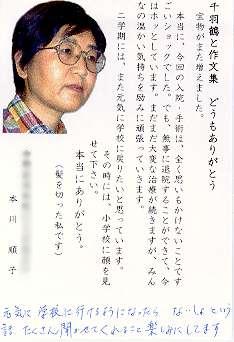 千羽鶴と作文集 どうもありがとう
宝物がまた増えました。
本当に、今回の入院・手術は、全く思いもかけないことです
ごいショックでした。でも、無事に退院することができて、今
はホッとしています。まだまだ大変な治療が続きますが、みん
なの温かい気持ちを励みに頑張っていきます。
二学期には、また元気に学校に戻りたいと思っています。
その時には、小学校に顔を見
せて下さい。
本当にありがとう。
(髪を切った私です)
本川 順子
元気に学校に行けるようになったら ないしょという
話 たくさん聞かせてくれること楽しみにしてます